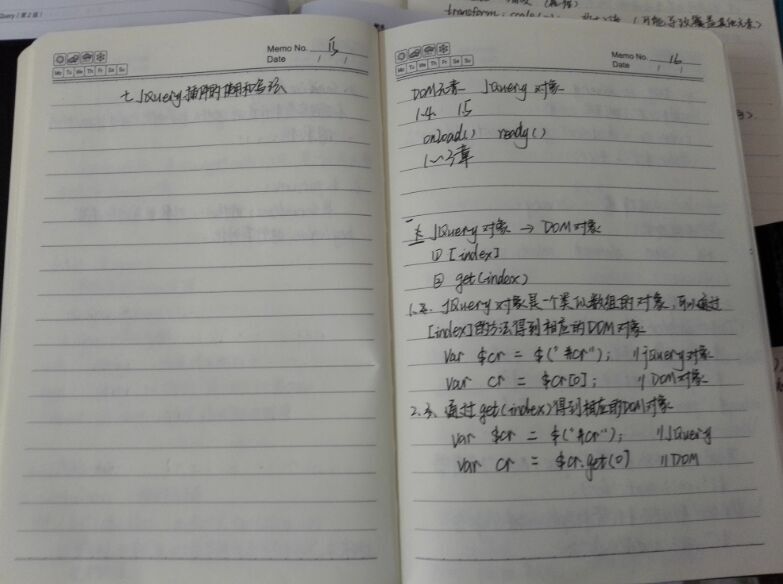 Query (第2版)
Memo No. 15
Date / /
Mo Tu We Th Fr Sa Su
七 JQuery 插件的使用和写法
Memo No. 16
Date / /
Mo Tu We Th Fr Sa Su
DOM元素 JQuery 对象
1.4. 15
onload() ready()
1~3章
JQuery 对象 → DOM 对象
① [index]
② get(index)
JQuery 对象是一个类似数组的对象,可以通过
[index]的方法得到相应的DOM对象
var $cr = $("#cr"); //jquery对象
var cr = $cr[0]; // DOM对象
通过get(index)得到相应的DOM对象
var $cr = $("#cr"); //JQuery
var cr = $cr.get(0) //DOM